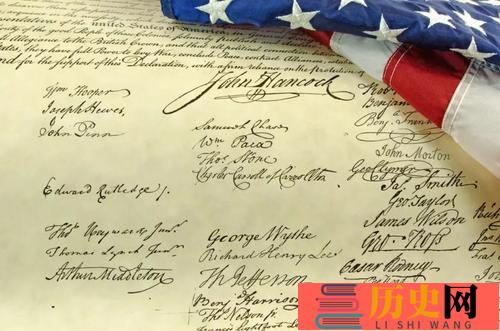 of the united States of America
the good People of these Colonies
to the British Crown, and that all political connection
they have full Power to levy War, conclude Peace, contract Alliances,
And for the support of this Declaration, with a firm reliance on the protection of
John Hancock
Wm Hooper
Joseph Hewes,
John Penn
Edward Rutledge /.
Thos Heyward Junr.
Thomas Lynch Junr.
Arthur Middleton
Samuel Chase
Wm Paca
Thos Stone
Charles Carroll of Carrollton
George Wythe
Richard Henry Lee
Th Jefferson
Benj Harrison
Thos Nelson jr.
Francis Lightfoot Lee
Benj. Frank
John Morton
Geo Clymer
Jas. Smith
Geo. Taylor
James Wilson
Geo. Ross
Caesar Rodney
历史网
LI SHI WANG